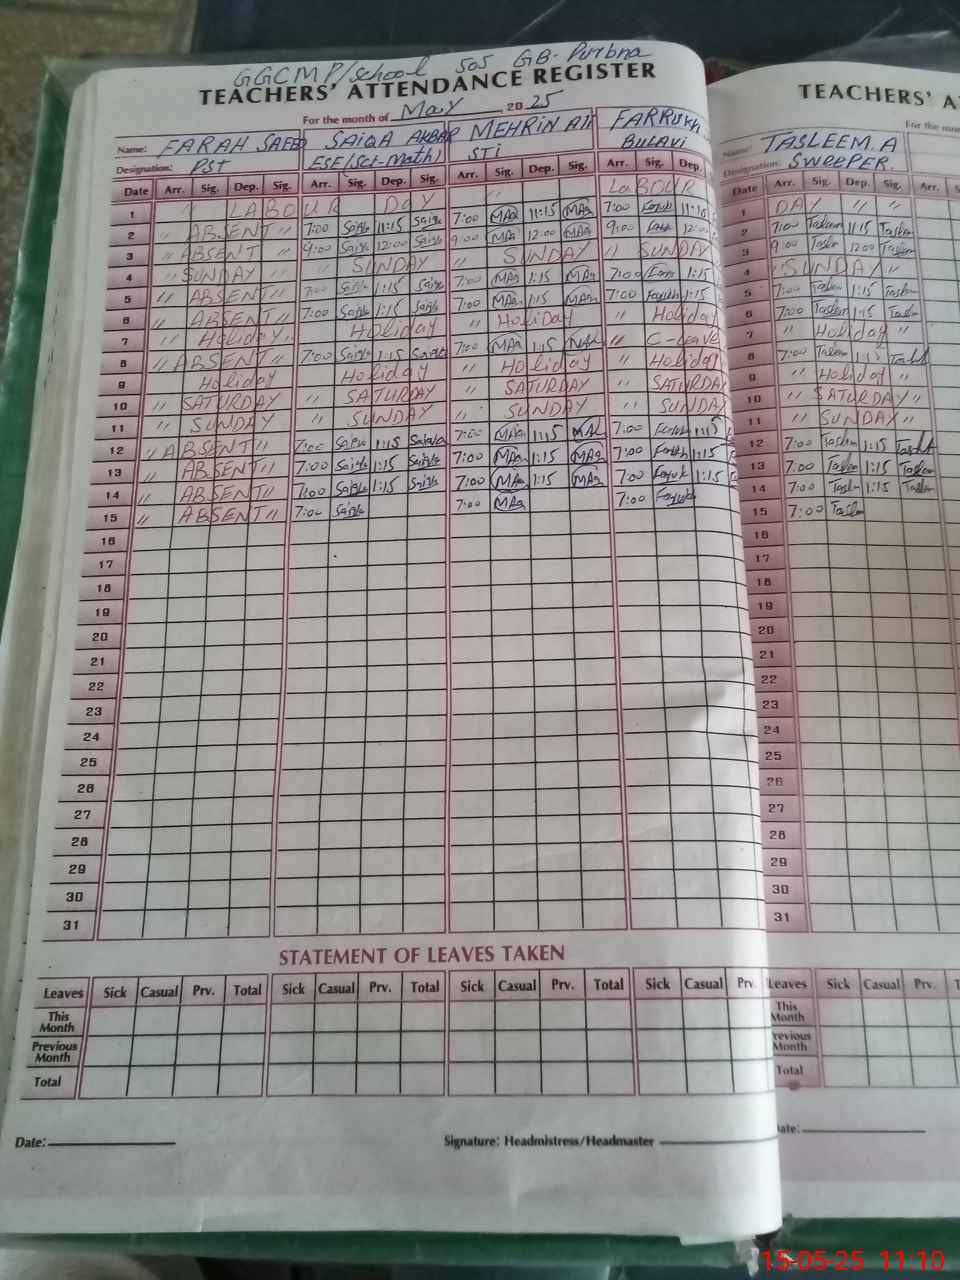 GGCMP/School 505 GB-Purbna
TEACHERS' ATTENDANCE REGISTER
For the month of May 2025
Name: FARAH SAEED SAIQA AKBAR MEHRIN ALI FARRUKH
Designation: PST ESE(Sci-Math) STi BULAVI
Date Arr. Sig. Dep. Sig. Arr. Sig. Dep. Sig. Arr. Sig. Dep. Sig. Arr. Sig. Dep.
1 " LABOUR DAY " LABOUR
2 " ABSENT " 7:00 Saiqa 11:15 Saiqa 7:00 MAa 11:15 MAa 7:00 11:15
3 " ABSENT " 9:00 Saiqa 12:00 Saiqa 9:00 MAa 12:00 MAa 9:00 12:00
4 " SUNDAY " " SUNDAY " SUNDAY " SUNDAY
5 " ABSENT " 7:00 Saiqa 1:15 Saiqa 7:00 MAa 1:15 MAa 7:00 1:15
6 " ABSENT " 7:00 Saiqa 1:15 Saiqa 7:00 MAa 1:15 MAa 7:00 1:15
7 " Holiday " Holiday " Holiday " Holiday
8 " ABSENT " 7:00 Saiqa 1:15 Saiqa 7:00 MAa 1:15 " C-leave
9 Holiday Holiday " Holiday " Holiday
10 " SATURDAY " SATURDAY " SATURDAY " SATURDAY
11 " SUNDAY " SUNDAY " SUNDAY " SUNDAY
12 " ABSENT " 7:00 Saiqa 1:15 Saiqa 7:00 MAa 1:15 7:00 1:15
13 " ABSENT " 7:00 Saiqa 1:15 Saiqa 7:00 MAa 1:15 MAa 7:00 1:15
14 " ABSENT " 7:00 Saiqa 1:15 Saiqa 7:00 MAa 1:15 MAa 7:00 1:15
15 " ABSENT " 7:00 Saiqa 7:00 MAa 7:00
16
17
18
19
20
21
22
23
24
25
26
27
28
29
30
31
STATEMENT OF LEAVES TAKEN
Leaves Sick Casual Prv. Total Sick Casual Prv. Total Sick Casual Prv. Total Sick Casual Prv.
This Month
Previous Month
Total
Date: Signature: Headmistress/Headmaster
TEACHERS'
For the
Name: TASLEEM. A
Designation: SWEEPER.
Date Arr. Sig. Dep. Sig. Arr.
1 DAY " "
2 7:00 Taslem 11:15 Taslem
3 9:00 Taslem 12:00 Taslem
4 " SUNDAY "
5 7:00 Taslem 1:15 Taslem
6 7:00 Taslem 1:15 Taslem
7 " Holiday "
8 7:00 Taslem 1:15
9 " Holiday "
10 " SATURDAY "
11 " SUNDAY "
12 7:00 Taslem 1:15
13 7:00 Taslem 1:15 Taslem
14 7:00 Taslem 1:15 Taslem
15 7:00 Taslem
16
17
18
19
20
21
22
23
24
25
26
27
28
29
30
31
Leaves Sick Casual Prv.
This Month
Previous Month
Total
Date:
15-05-25 11:10